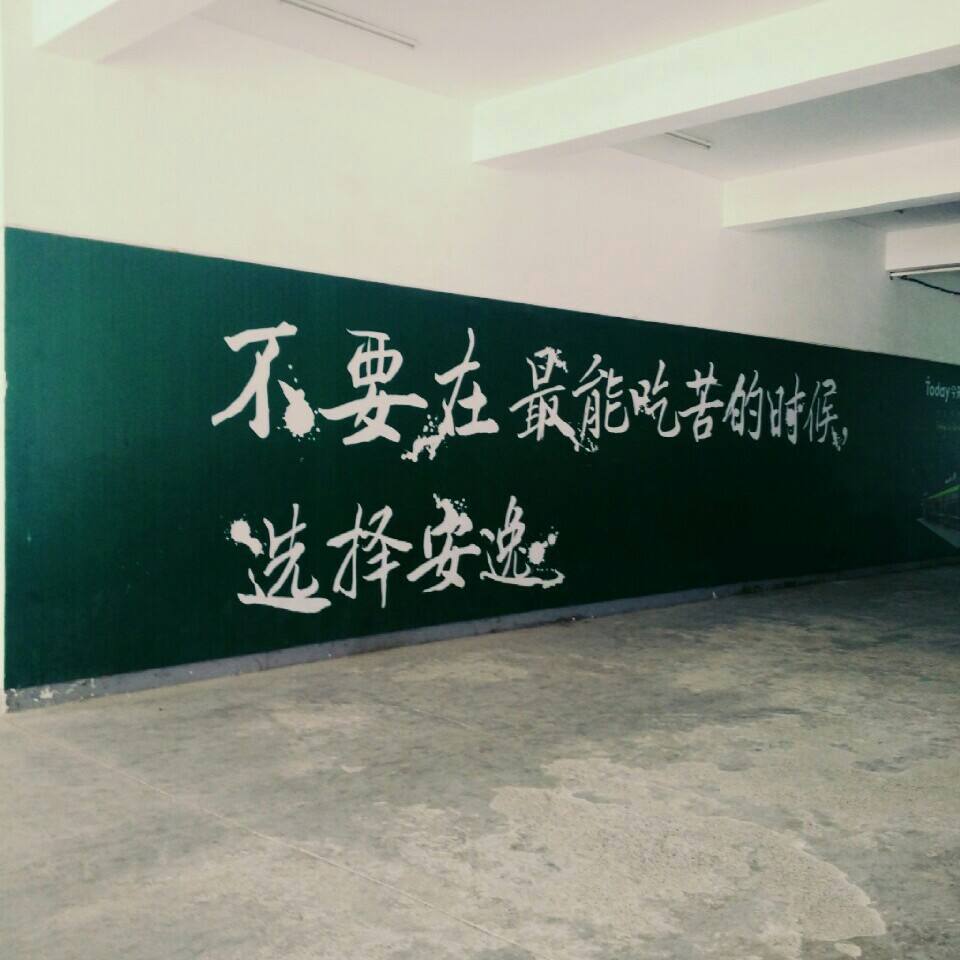 不要在最能吃苦的时候，
选择安逸
Today今